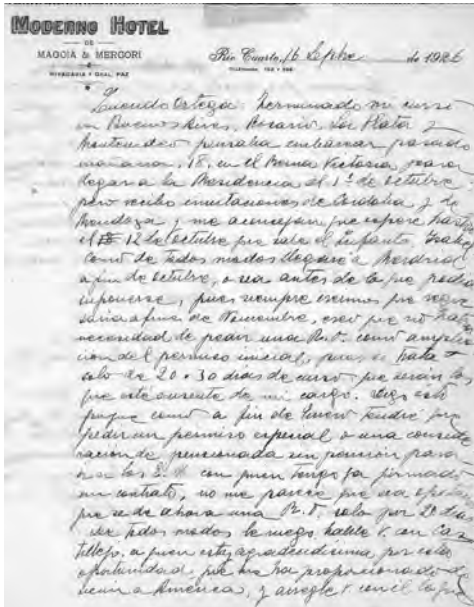 MODERNO HOTEL
DE
MAGGIA & MERGORI
RIVADAVIA Y GRAL. PAZ
Río Cuarto, 16 Sepbre de 1926
Querido Ortega: Terminado mi curso
en Buenos Aires, Rosario, La Plata y
Montevideo pensaba embarcar pasado
mañana, 18, en el Reina Victoria para
llegar a la Residencia el 1º de octubre
pero recibo invitaciones de Córdoba y de
Mendoza y me aconsejan que espere hasta
el 12 de octubre que sale el Infanta Isabel
Como de todos modos llegaré a Madrid
a fin de octubre, o sea antes de lo que podía
suponerse, pues siempre creímos que regre
saría a fines de Noviembre, creo que no habrá
necesidad de pedir una R.O. como amplia
ción del permiso inicial, pues se trata
solo de 20 o 30 días de curso que serán lo
que esté ausente de mi cargo. Digo esto
porque como a fin de Enero tendré que
pedir un permiso especial o una conside
ración de pensionada sin pensión para
ir a los E.U. con quien tengo ya firmado
un contrato, no me parece que sea
que se dé ahora una R.O. solo por 20 días
De todos modos le ruego hable V. con Cas
tillejo, a quien estoy agradecidísima por esta
oportunidad que me ha proporcionado de
venir a América, y arregle V. con él lo que